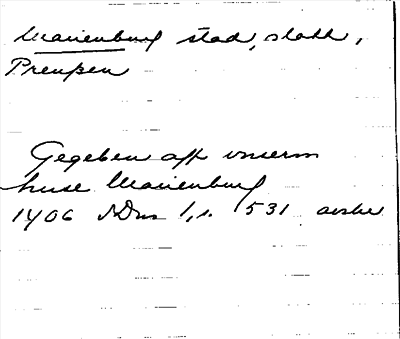 Marienburg stad, slott,
Preuſsen
Gegeben uff unserm
huse Marienburg
1406 SDns 1, s. 531 avskr